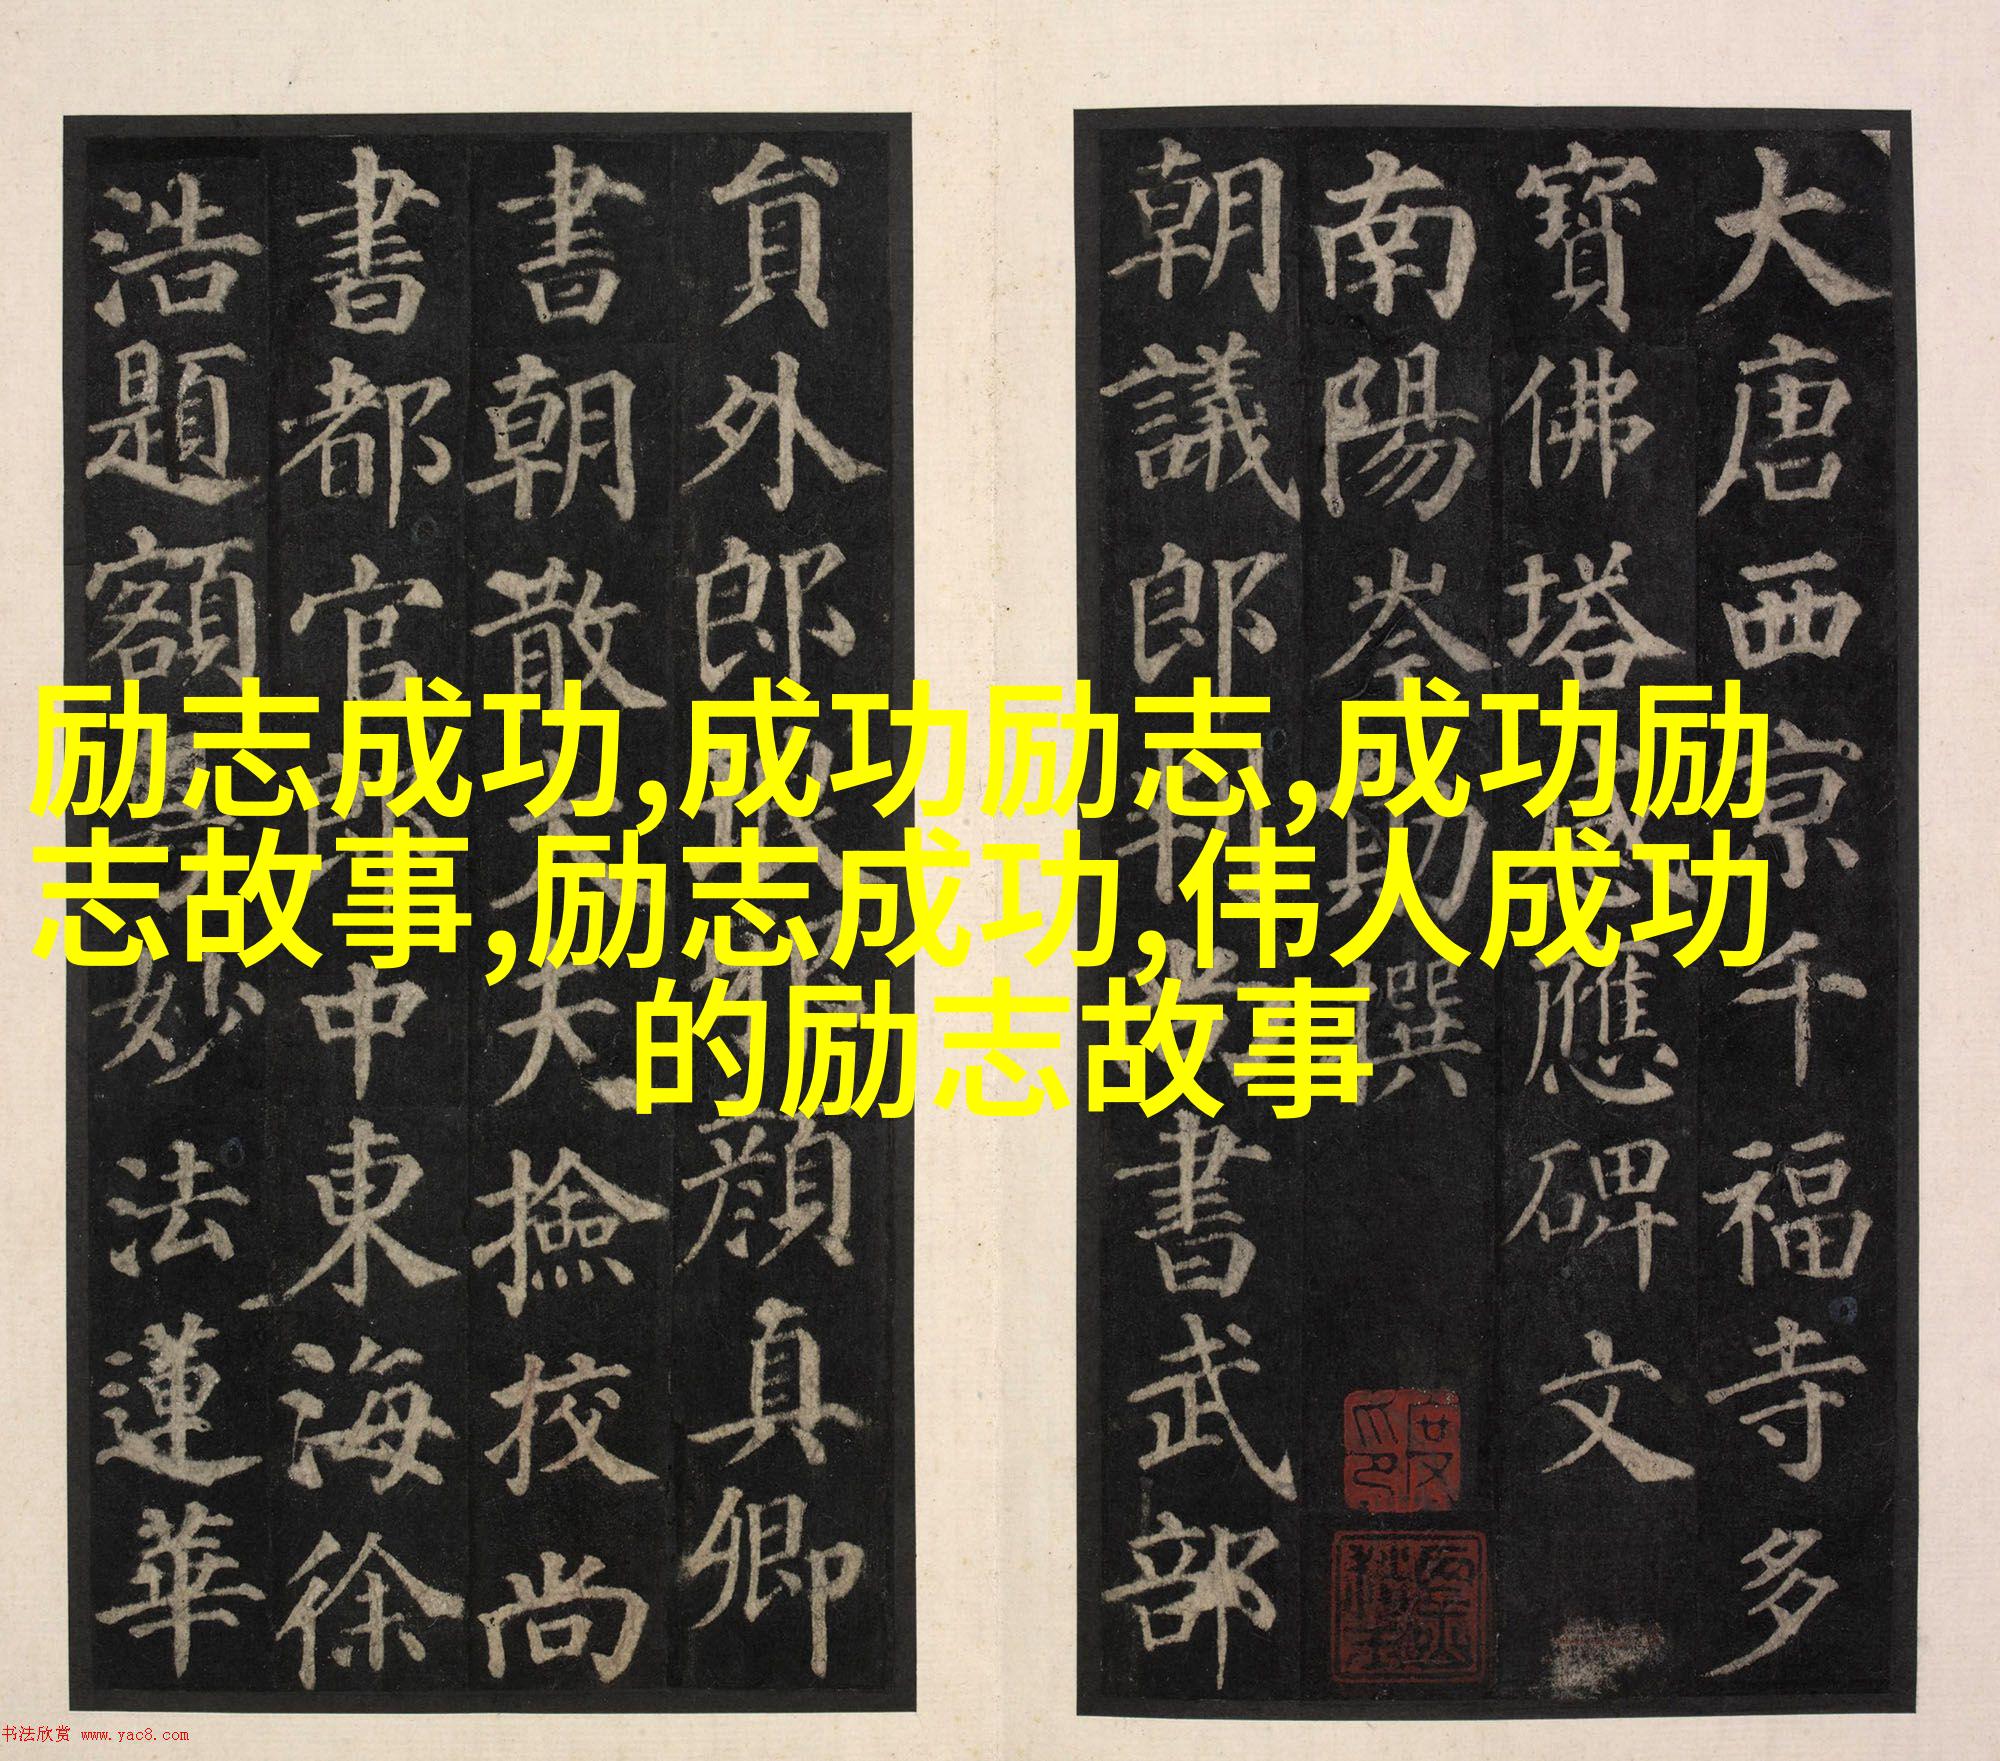 励志成功,成功励志,成功励
志故事,励志成功,伟人成功
的励志故事
大唐西京千福寺多
寶佛塔感應碑文
南陽岑勛撰
朝議郎判尚書武部
貟外郎琅邪顏真卿
書朝散大夫撿挍尚
書都官郎中東海徐
浩題額
妙法蓮華
书法欣赏 www.yac8.com